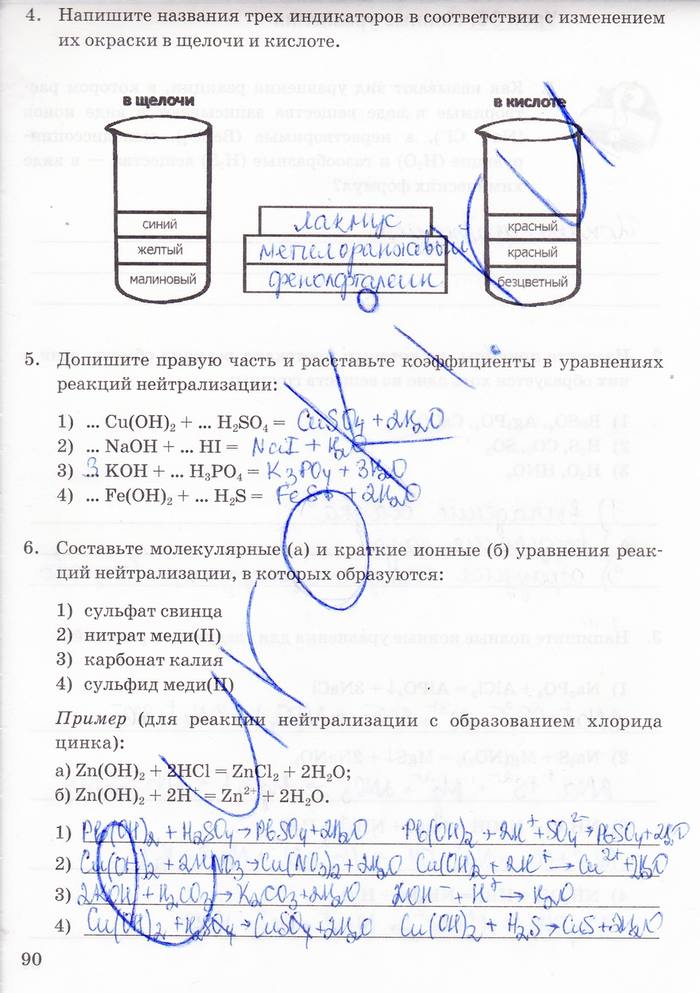 4. Напишите названия трех индикаторов в соответствии с изменением
их окраски в щелочи и кислоте.
в щелочи
в кислоте
синий
желтый
малиновый
лакмус
метилоранжевый
фенолфталеин
красный
красный
безцветный
5. Допишите правую часть и расставьте коэффициенты в уравнениях
реакций нейтрализации:
1) ... Cu(OH)₂ + ... H₂SO₄ = CuSO₄ + 2H₂O
2) ... NaOH + ... HI = NaI + H₂O
3) 3 KOH + ... H₃PO₄ = K₃PO₄ + 3H₂O
4) ... Fe(OH)₂ + ... H₂S = FeS + 2H₂O
6. Составьте молекулярные (а) и краткие ионные (б) уравнения реак-
ций нейтрализации, в которых образуются:
1) сульфат свинца
2) нитрат меди(II)
3) карбонат калия
4) сульфид меди(II)
Пример (для реакции нейтрализации с образованием хлорида
цинка):
а) Zn(OH)₂ + 2HCl = ZnCl₂ + 2H₂O;
б) Zn(OH)₂ + 2H⁺ = Zn²⁺ + 2H₂O.
1) Pb(OH)₂ + H₂SO₄ → PbSO₄ + 2H₂O Pb(OH)₂ + 2H⁺ + SO₄²⁻ → PbSO₄ + 2H₂O
2) Cu(OH)₂ + 2HNO₃ → Cu(NO₃)₂ + 2H₂O Cu(OH)₂ + 2H⁺ → Cu²⁺ + 2H₂O
3) 2KOH + H₂CO₃ → K₂CO₃ + 2H₂O 2OH⁻ + H⁺ → H₂O
4) Cu(OH)₂ + H₂SO₄ → CuSO₄ + 2H₂O Cu(OH)₂ + H₂S → CuS + 2H₂O
90